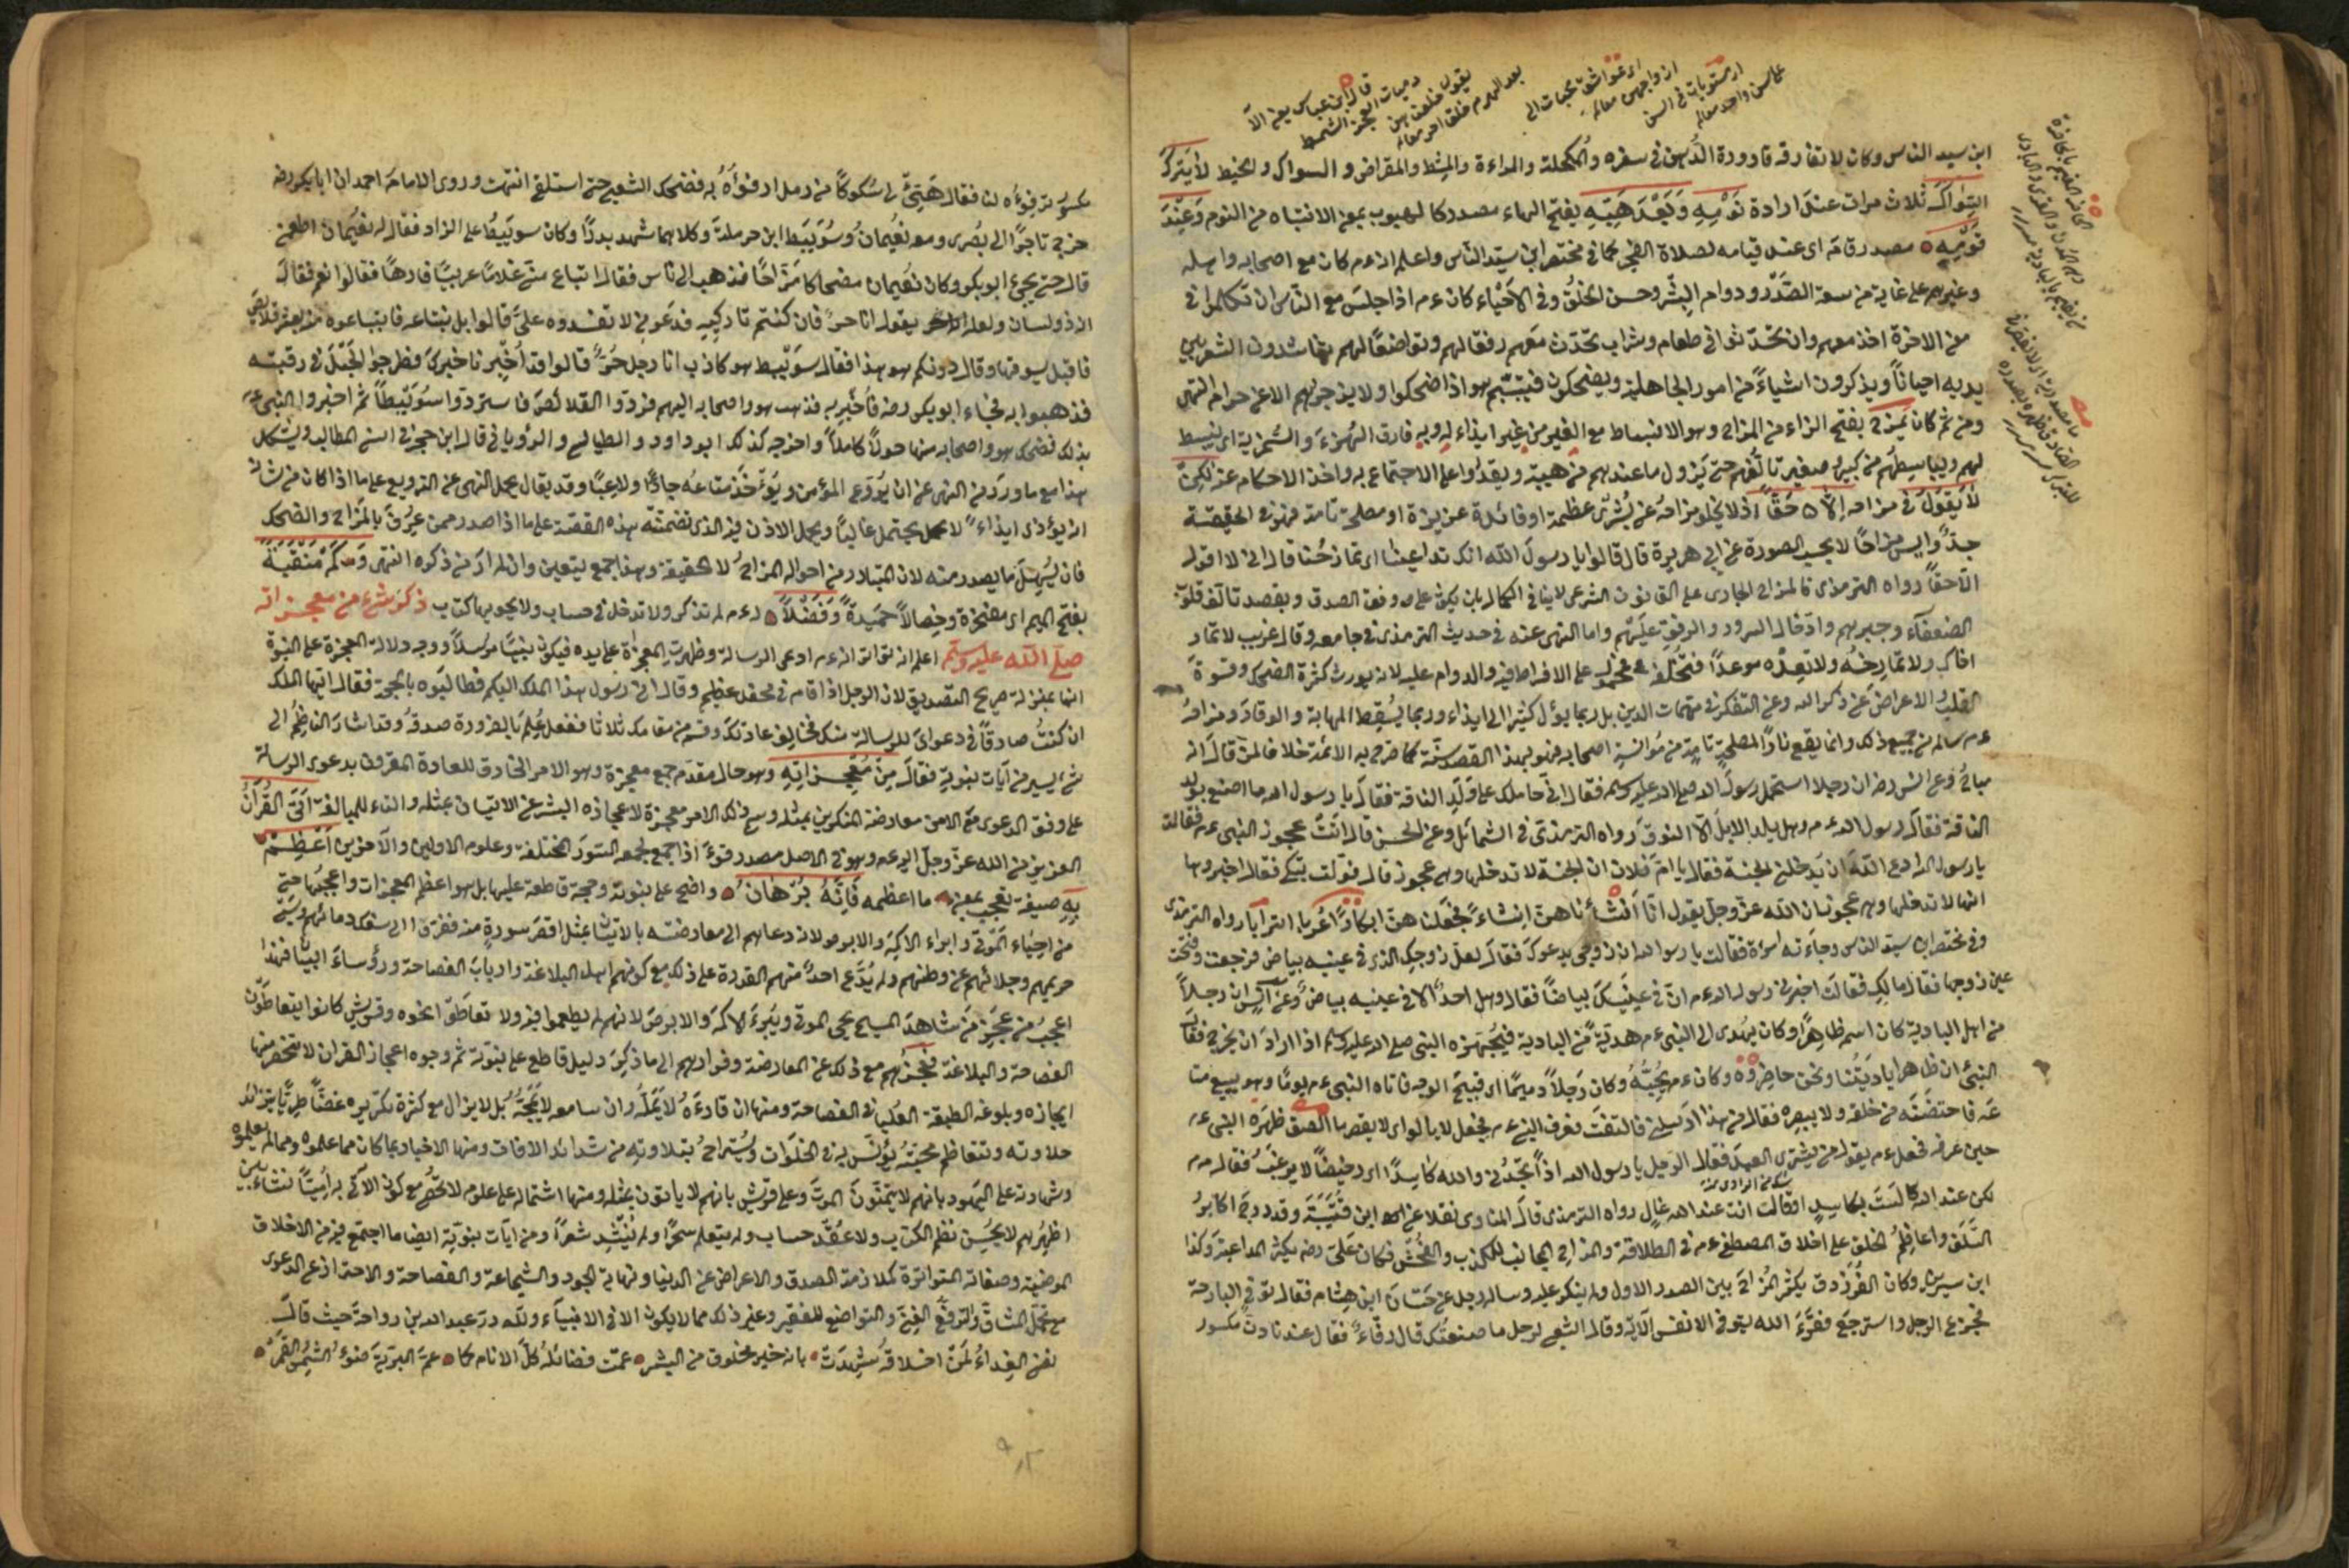 ابن سيد الناس وكان لا تفارقه قارورة الدهن في سفره والمكحلة والمراءة والمشط والمقراض والسواك والخيط لا يترك
السواك ثلاث مرات عند ارادة نومه وبعد هبه بفتح الهاء مصدر كالهبوب بمعنى الانتباه من النوم وعند
قومه مصدر قام اى عند قيامه لصلاة الفجر كما في مختصر ابن سيد الناس واعلم انه عم كان مع اصحابه واهله
وغيرهم على غاية من سعة الصدر ودوام البشر وحسن الخلق وفي الاحياء كان عم اذا جلس مع الناس ان تكلموا في
معنى الاخرة اخذ معهم وان تحدثوا في طعام وشراب تحدث معهم رفقا لهم وتواضعا لهم يتناشدون الشعر بين
يديه احيانا ويذكرون اشياء من امور الجاهلية ويضحكون فيتبسم هو اذا ضحكوا ولا يزجرهم الا عن حرام انتهى
ومن ثم كان يمزح بفتح الزاء من المزاح وهو الانبساط مع الغير من غير ايذاء له وبه فارق الهزء والسخرية اى ينبسط
لهم ويباسطهم من كبير وصغير تألفهم حتى يزول ما عندهم من هيبة ويقدروا على الاجتماع به واخذ الاحكام عنه لكن
لا يقول في مزاحه الا حقا اذ لا يخلو مزاحه عن بشرى عظيمة او فائدة عزيزة او مصلحة تامة فهو في الحقيقة
جد وليس مزاحا لا بحسب الصورة عن ابي هريرة قال قالوا يا رسول الله انك تداعبنا اى تمازحنا قال اني لا اقول
الا حقا رواه الترمذى فالمزاح الجارى على القانون الشرعى لا ينافي الكمال بان يكون على وفق الصدق وبقصد تألف قلوب
الضعفاء وجبرهم وادخال السرور والرفق عليهم واما النهى عنه في حديث الترمذى في جامعه وقال غريب لا تمار
اخاك ولا تمازحه ولا تعده موعدا فتخلفه فمحمول على الافراط فيه والدوام عليه لانه يورث كثرة الضحك وقسوة
القلب والاعراض عن ذكر الله وعن التفكر في مهمات الدين بل ربما يؤل كثيرا الى ايذاء وربما يسقط المهابة والوقار ومزاحه
عم سالم من جميع ذلك وانما يقع نادرا لمصلحة تامة من مؤانسة اصحابه فهو بهذا القصد سنة كما صرح به الائمة خلافا لمن قال انه
مباح وعن انس رضه ان رجلا استحمل رسول الله صلى الله عليه وسلم فقال اني حاملك على ولد الناقة فقال يا رسول الله ما اصنع بولد
الناقة فقال رسول الله عم وهل يلد الابل الا النوق رواه الترمذى في الشمائل وعن الحسن قال اتت عجوز النبى عم فقالت
يا رسول الله ادع الله ان يدخلني الجنة فقال يا ام فلان ان الجنة لا تدخلها وهى عجوز قال فولت تبكى فقال اخبروها
انها لا تدخلها وهى عجوز ان الله عز وجل يقول انا انشأناهن انشاء فجعلناهن ابكارا عربا اترابا رواه الترمذى
وفي مختصر ابن سيد الناس وجاءته امرأة فقالت يا رسول الله ان زوجى يدعوك فقال لعل زوجك الذى في عينيه بياض فرجعت وفتحت
عين زوجها فقال مالك فقالت اخبرني رسول الله عم ان في عينيك بياضا فقال وهل احد الا في عينيه بياض وعن انس ان رجلا
من اهل البادية كان اسمه ظاهرا وكان يهدى الى النبى عم هدية من البادية فيجهزه النبى صلى الله عليه وسلم اذا اراد ان يخرج فقال
النبى ان ظاهرا باديتنا ونحن حاضروه وكان عم يحبه وكان رجلا دميما اى قبيح الوجه فاتاه النبى عم يوما وهو يبيع متا
عه فاحتضنه من خلفه ولا يبصره فقال من هذا ارسلني فالتفت فعرف النبى عم فجعل لا يألو اى لا يقصر ما الصق ظهره النبى عم
حين عرفه فجعل عم يقول من يشترى العبد فقال الرجل يا رسول الله اذا تجدني والله كاسدا اى رخيصا لا يرغب فقال عم
لكن عند الله لست بكاسد او قال انت عند الله غال رواه الترمذى قال المناوى نقلا عن ابن قتيبة وقد درج اكابر
السلف واعاظم الخلف على اخلاق المصطفى عم في الطلاقة والمزاح المجانب للكذب والفحش فكان على رضه يكثر المداعبة وكذا
ابن سيرين وكان الفرزدق يكثر المزاح بين الصدر الاول ولم ينكر عليه وسأله رجل عن حسان ابن هشام فقال توفي البارحة
فجزع الرجل واسترجع فقرء الله يتوفى الانفس الآية وقال الشعبى لرجل ما صنعتك قال رفاء فقال عندنا دن مكسور
مكسور ترفوءه لنا فقال هيئ لى سلوكا من رمل ارفوءه به فضحك الشعبى حتى استلقى انتهت وروى الامام احمد ان ابا بكر رضه
خرج تاجرا الى بصرى ومعه نعيمان وسويبط ابن حرملة وكلاهما شهد بدرا وكان سويبط على الزاد فقال له نعيمان اطعمنى
قال حتى يجئ ابو بكر وكان نعيمان مضحاكا مزاحا فذهب الى ناس فقال اتباع منى غلاما عربيا فارها فقالوا نعم فقال
انه ذو لسان ولعله يقول انا حر فان كنتم تاركيه فدعوني لا تفسدوه على قالوا بل نبتاعه فابتاعوه منه بعشر قلائص
فاقبل يسوقها وقال دونكم هو هذا فقال سويبط هو كاذب انا رجل حر قالوا قد اخبرنا خبرك وطرحوا الحبل في رقبته
فذهبوا به فجاء ابو بكر رضه فأخبر به فذهب هو واصحابه اليهم فردوا القلائص فاستردوا سويبطا ثم اخبروا النبى عم
بذلك فضحك هو واصحابه منها حولا كاملا واخرجه كذلك ابو داود والطيالسى والرؤياني قال ابن حجر في اسنى المطالب ويشكل
هذا مع ما ورد من النهى عن ان يروع المؤمن ويؤخذ متاعه جادا ولاعبا وقد يقال يحمل النهى عن الترويع على ما اذا كان من شأنه
ان يؤذى ايذاء لا يحتمل غالبا ويحمل الاذن فيه الذى تضمنته هذه القصة على ما اذا صدر ممن عرف بالمزاح والضحك
فان يسهل ما يصدر منه لان المتبادر من احواله المزاح لا الحقيقة وهذا جمع يتعين وان لم ار من ذكره انتهى وكم منقبة
بفتح الميم اى مفخرة وخصالا حميدة وفضلا له عم لم تذكر ولا تدخل في حساب ولا يحويها كتاب ذكر شئ من معجزاته
صلى الله عليه وسلم اعلم انه تواتر انه عم ادعى الرسالة وظهرت المعجزة على يده فيكون نبيا مرسلا ووجه دلالة المعجزة على النبوة
انها بمنزلة صريح التصديق لان الرجل اذا قام في محفل عظيم وقال اني رسول هذا الملك اليكم فطالبوه بالحجة فقال ايها الملك
ان كنت صادقا في دعواى للرسالة منك فخالف عادتك وقم من مقامك ثلاثا ففعل علم بالضرورة صدقه وقد اشار الناظم الى
شئ يسير من آيات نبوته فقال من معجزاته وهو حال مقدم جمع معجزة وهو الامر الخارق للعادة المقرون بدعوى الرسالة
على وفق الدعوى مع الامن معارضة المنكرين بمثله وسمى ذلك الامر معجزة لاعجازه البشر عن الاتيان بمثله والتاء للمبالغة اتى القرآن
العزيز من الله عز وجل اليه عم وهو في الاصل مصدر قرء اذا جمع لجمعه السور المختلفة وعلوم الاولين والآخرين اعظم
به صيغة تعجب بمعنى ما اعظمه فانه برهان واضح على نبوته وحجة قاطعة عليها بل هو اعظم المعجزات واعجبها حتى
من احياء الموتى وابراء الاكمه والابرص لانه دعاهم الى معارضته بالاتيان بمثل اقصر سورة منه ففزعوا الى سفك دمائهم وسبى
حريمهم وجلائهم عن وطنهم ولم يدع احد منهم القدرة على ذلك مع كونهم اهل البلاغة وارباب الفصاحة ورؤساء البيان فهذا
اعجب من عجز من شاهد المسيح يحيى الموتى ويبرئ الاكمه والابرص لانهم لم يطمعوا فيه ولا تعاطوا نحوه وقريش كانوا يتعاطون
الفصاحة والبلاغة فعجزهم مع ذلك عن المعارضة وفرارهم الى ما ذكر دليل قاطع على نبوته ثم وجوه اعجاز القران لا تنحصر منها
ايجازه وبلوغه الطبقة العليا في الفصاحة ومنها ان قارءه لا يمله وان سامعه لا يمجه بل لا يزال مع كثرة تكريره غضا طريا يتزائد
حلاوته وتتعاظم محبته يؤنس به في الخلوات ويستراح بتلاوته من شدائد الافات ومنها الاخبار بما كان مما علموه ومما لم يعلموه
وشهادته على اليهود بانهم لا يتمنون الموت وعلى قريش بانهم لا يأتون بمثله ومنها اشتماله على علوم لا تحصر مع كون الآتى به اميا نشاء بين
اظهرهم لا يحسن نظم الكتب ولا عقد حساب ولم يتعلم سحرا ولم ينشد شعرا ومن آيات نبوته ايضا ما اجتمع فيه من الاخلاق
المرضية وصفاته المتواترة كملازمة الصدق والاعراض عن الدنيا ونهاية الجود والشجاعة والفصاحة والاحتراز عن الدعوى
مع تحمل المشاق والترفع الغنى والتواضع للفقير وغير ذلك مما لا يكون الا في الانبياء ولله در عبد الله بن رواحة حيث قال
نفسى الفداء لمن اخلاقه شهدت بانه خير مخلوق من البشر عمت فضائله كل الانام كما عم البرية ضوء الشمس القمر